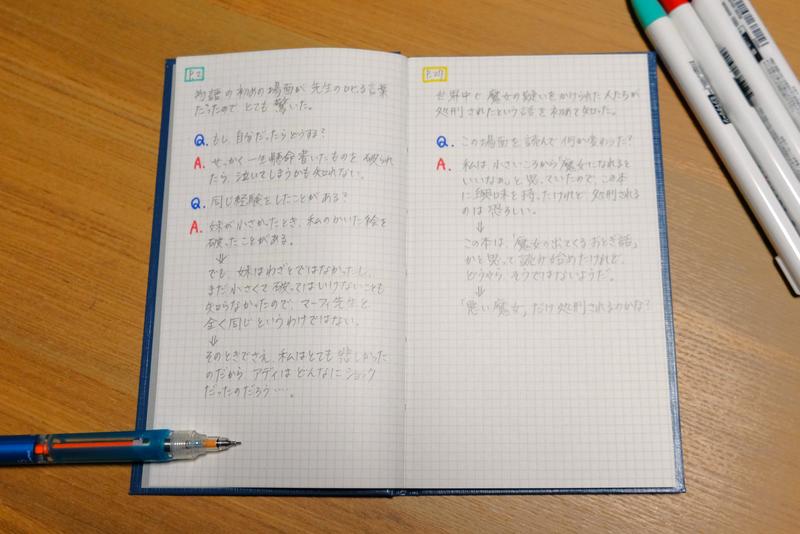 P.2
物語の初めの場面が、先生の叱る言葉
だったので とても驚いた。
Q. もし、自分だったらどうする?
A. せっかく一生懸命書いたものを 破られ
たら、泣いてしまうかも知れない。
Q. 同じ経験をしたことがある?
A. 妹が小さかったとき、私のかいた絵を
破ったことがある。
⇓
でも、妹はわざとではなかったし、
まだ小さくて 破ってはいけないことも
知らなかったので、マーフィ先生と
全く同じというわけではない。
⇓
そのときでさえ、私はとても 悲しかった
のだから アディは どんなに ショック
だったのだろう…。
世界中で 魔女の疑いをかけられた人たちが
処刑されたという話を初めて知った。
Q. この場面を読んで 何か変わった?
A. 私は 小さいころから魔女になれると
いいなぁ、と思っていたので、この本
に興味を持ったけれど、処刑される
のは恐ろしい。
⇓
この本は、「魔女の出てくる おとぎ話」
かと思って 読み始めたけれど、
どうやら そうではないようだ。
⇓
「悪い魔女」だけ処刑されるのかな?